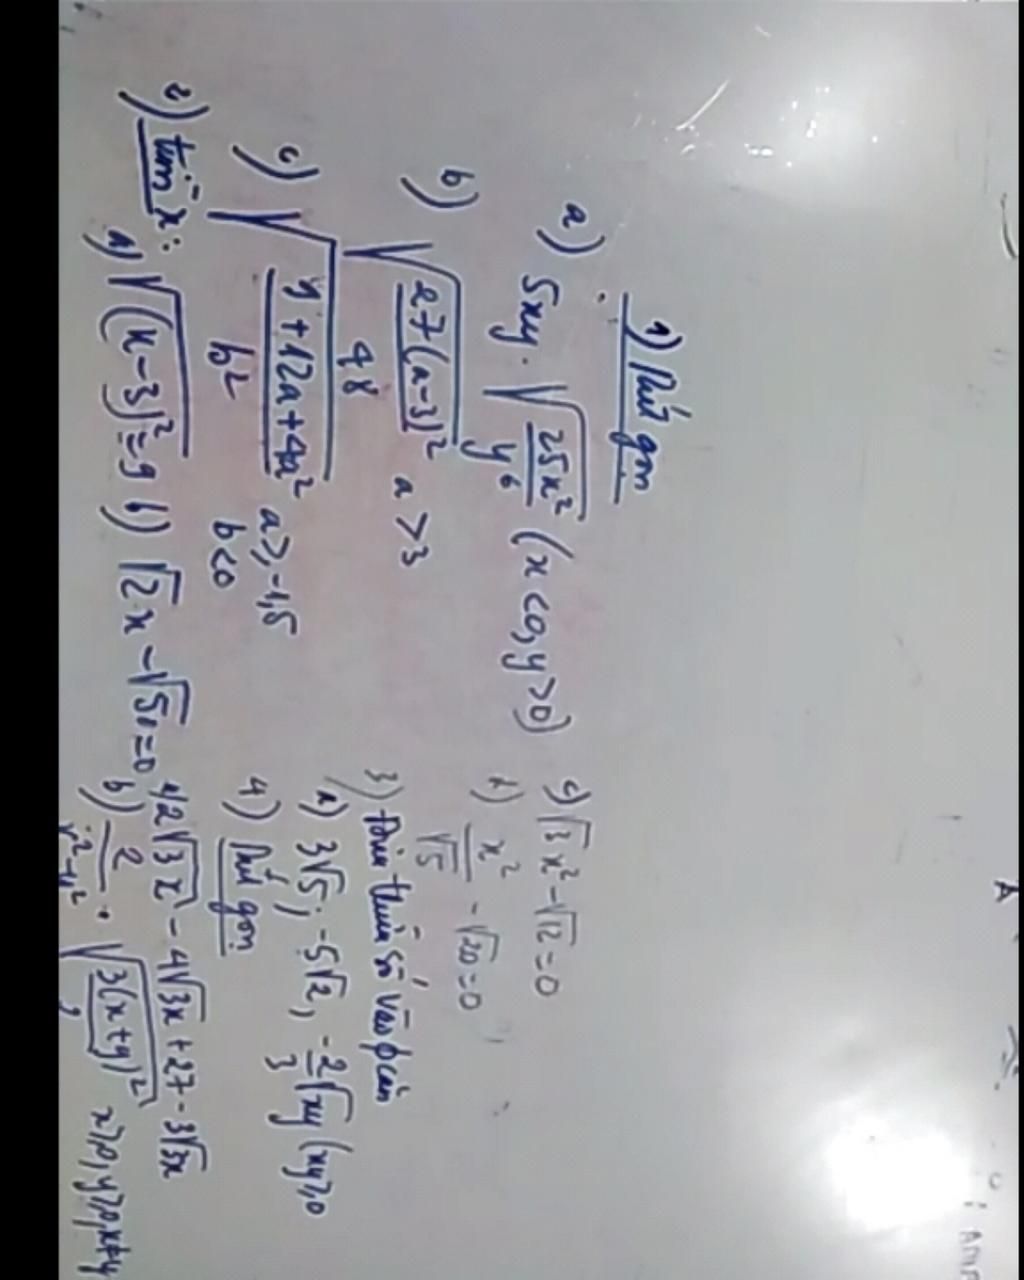 1) Rút gọn
a) 5xy · √(25x²/y⁶) (x<0, y>0)
b) √(27(a-3)²/48) a>3
c) √((9+12a+4a²)/b²) a≥-1,5 b<0
2) tìm x:
a) √(x-3)² = 9 b) √2 x - √50 = 0
c) √3 x² - √12 = 0
d) x²/√5 - √20 = 0
3) Đưa thừa số vào căn
a) 3√5; -5√2, -2/3 √xy (xy≥0
4) Rút gọn
a) 2√3x - 4√3x + 27 - 3√3x
b) 2/(x²-y²) · √(3(x+y)²/2) x≥0, y≥0, x≠y